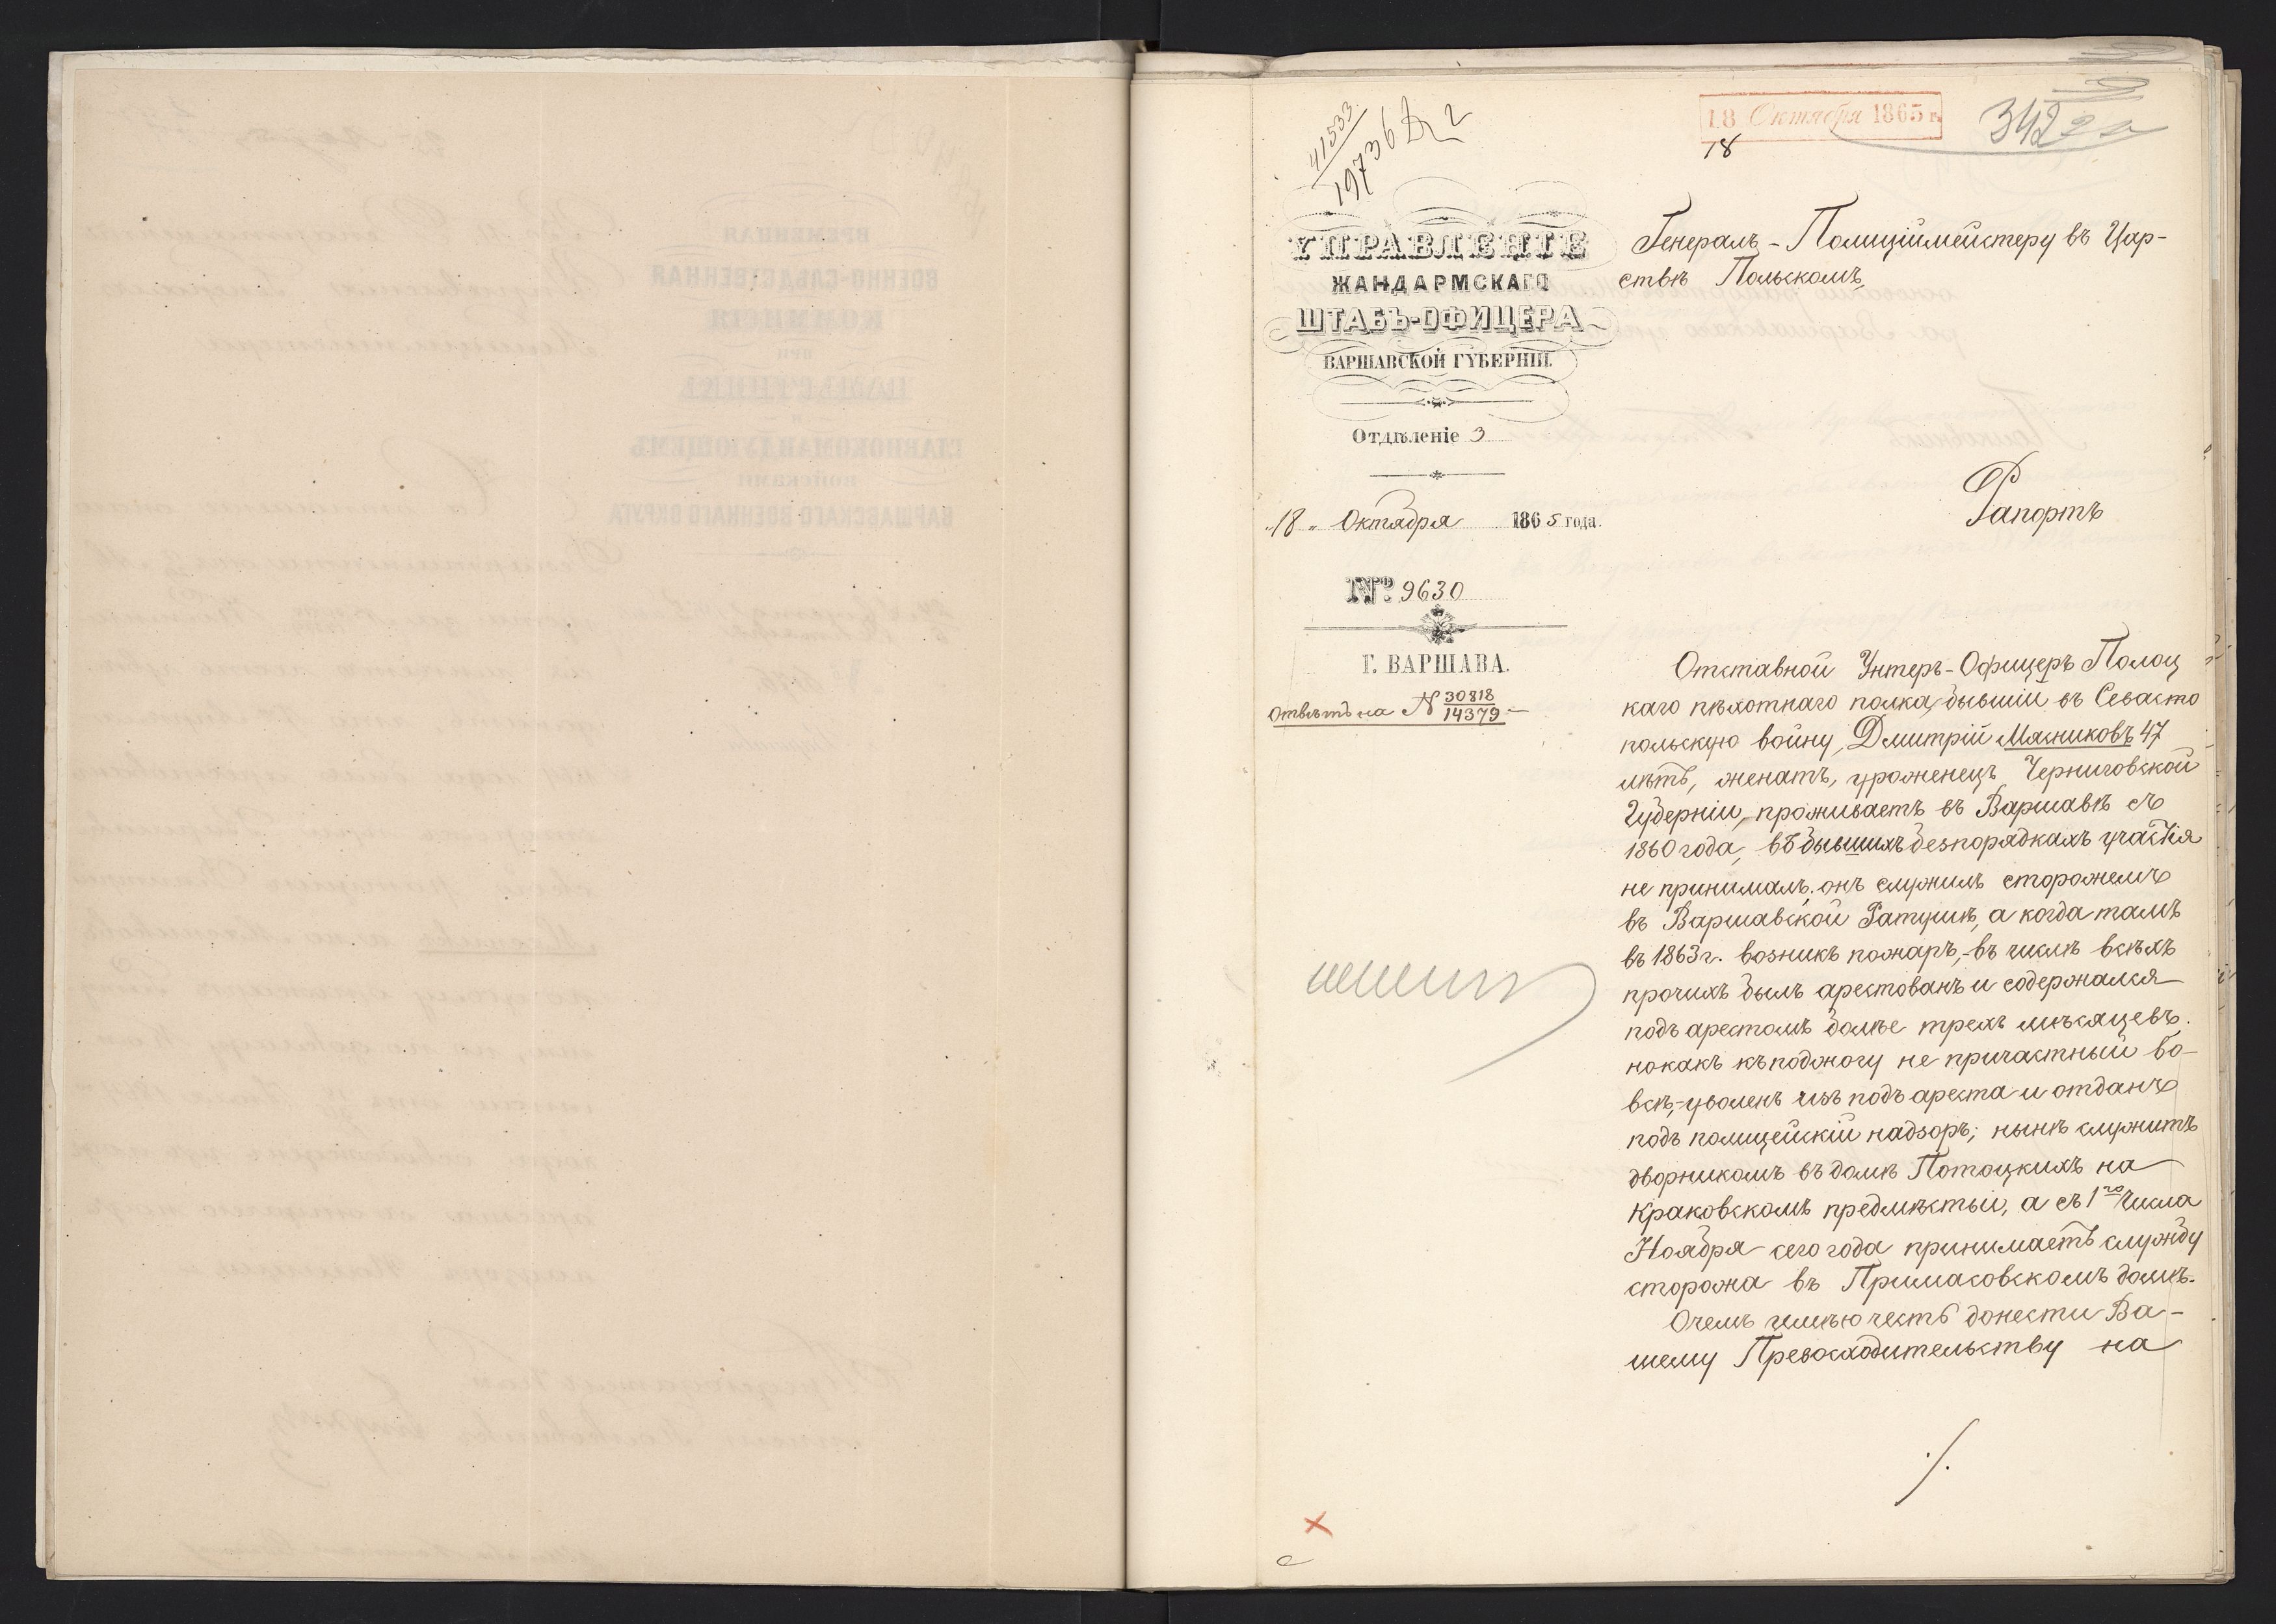 41533
19736
18 Октября 1865 г.
18
342
УПРАВЛЕНІЕ
ЖАНДАРМСКАГО
ШТАБЪ-ОФИЦЕРА
ВАРШАВСКОЙ ГУБЕРНІИ.
Отдѣленіе 3
„18„ Октября 1865 года.
№ 9630
Г. ВАРШАВА.
Отвѣтъ на N 30818
14379
Генералъ-Полиціймейстеру въ Цар-
ствѣ Польскомъ,
Рапортъ
Отставной Унтеръ-Офицеръ Полоц
каго пѣхотнаго полка, бывшій въ Севасто
польскую войну, Дмитрій Мясниковъ 47
лѣтъ, женатъ, уроженецъ Черниговской
Губерніи, проживаетъ въ Варшавѣ съ
1860 года, въ бывшихъ безпорядкахъ участія
не принималъ; онъ служилъ сторожемъ
въ Варшавской Ратушѣ, а когда тамъ
въ 1863 г. возникъ пожаръ,-въ числѣ всѣхъ
прочихъ былъ арестованъ и содержался
подъ арестомъ болѣе трехъ мѣсяцевъ.
но какъ къ поджогу не причастный во-
все,-уволенъ изъ подъ ареста и отданъ
подъ полицейскій надзоръ; нынѣ служитъ
дворникомъ въ домѣ Потоцкихъ на
Краковскомъ предмѣстьи, а съ 1го числа
Ноября сего года принимаетъ службу
сторожа въ Примасовскомъ домѣ.
О чемъ имѣю честь донести Ва-
шему Превосходительству на
./.